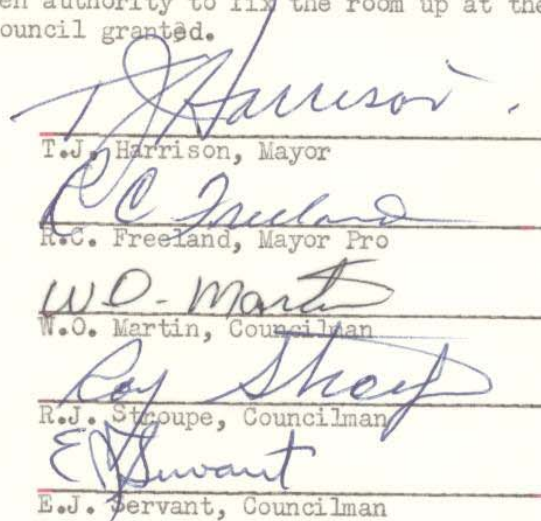 en authority to fix the room up at the
ouncil granted.
T J Harrison
T.J. Harrison, Mayor
R C Freeland
R.C. Freeland, Mayor Pro
W.O. Martin
W.O. Martin, Councilman
Roy
R.J. Stroupe, Councilman
E J Servant
E.J. Servant, Councilman